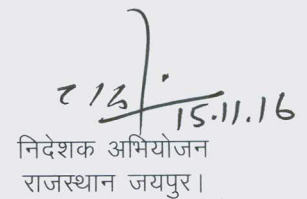 15.11.16
निदेशक अभियोजन
राजस्थान जयपुर।